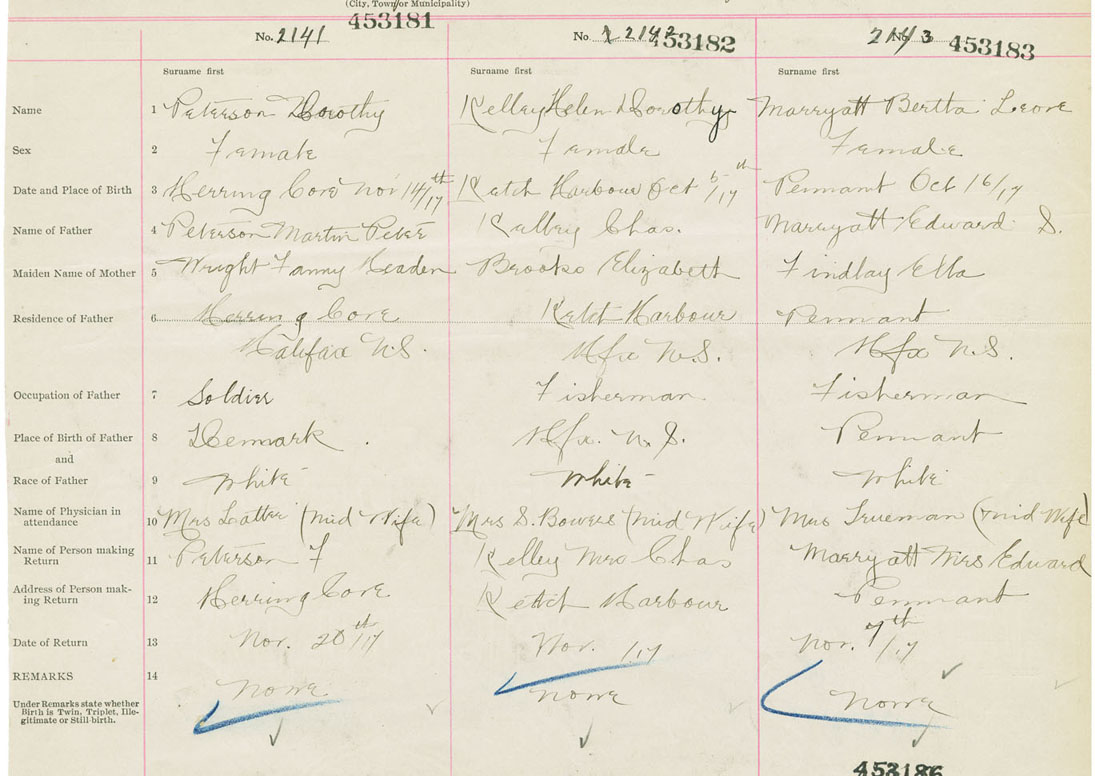 (City, Town or Municipality)
No. 2141 453181 No 2142 453182 2143 453183
Surname first Surname first Surname first
Name 1 Peterson Dorothy Kelley Helen Dorothy Marryatt Bertha Leone
Sex 2 Female Female Female
Date and Place of Birth 3 Herring Cove Nov 14th/17 Ketch Harbour Oct 5th/17 Pennant Oct 16/17
Name of Father 4 Peterson Martin Peter Kelley Chas. Marryatt Edward S.
Maiden Name of Mother 5 Wright Fanny Headen Brooks Elizabeth Findlay Ella
Residence of Father 6 Herring Cove Ketch Harbour Pennant
Halifax N.S. Hfx N.S. Hfx N.S.
Occupation of Father 7 Soldier Fisherman Fisherman
Place of Birth of Father 8 Demark. Hfx. N.S. Pennant
and
Race of Father 9 White White White
Name of Physician in
attendance 10 Mrs Latter (Mid Wife) Mrs S. Bowers (Mid Wife) Mrs Trueman (Mid Wife)
Name of Person making
Return 11 Peterson F Kelley Mrs Chas Marryatt Mrs Edward
Address of Person mak-
ing Return 12 Herring Cove Ketch Harbour Pennant
Date of Return 13 Nov. 20th/17 Nov. /17 Nov. 7th/17
REMARKS 14 None None None
Under Remarks state whether
Birth is Twin, Triplet, Ille-
gitimate or Still-birth.
453186